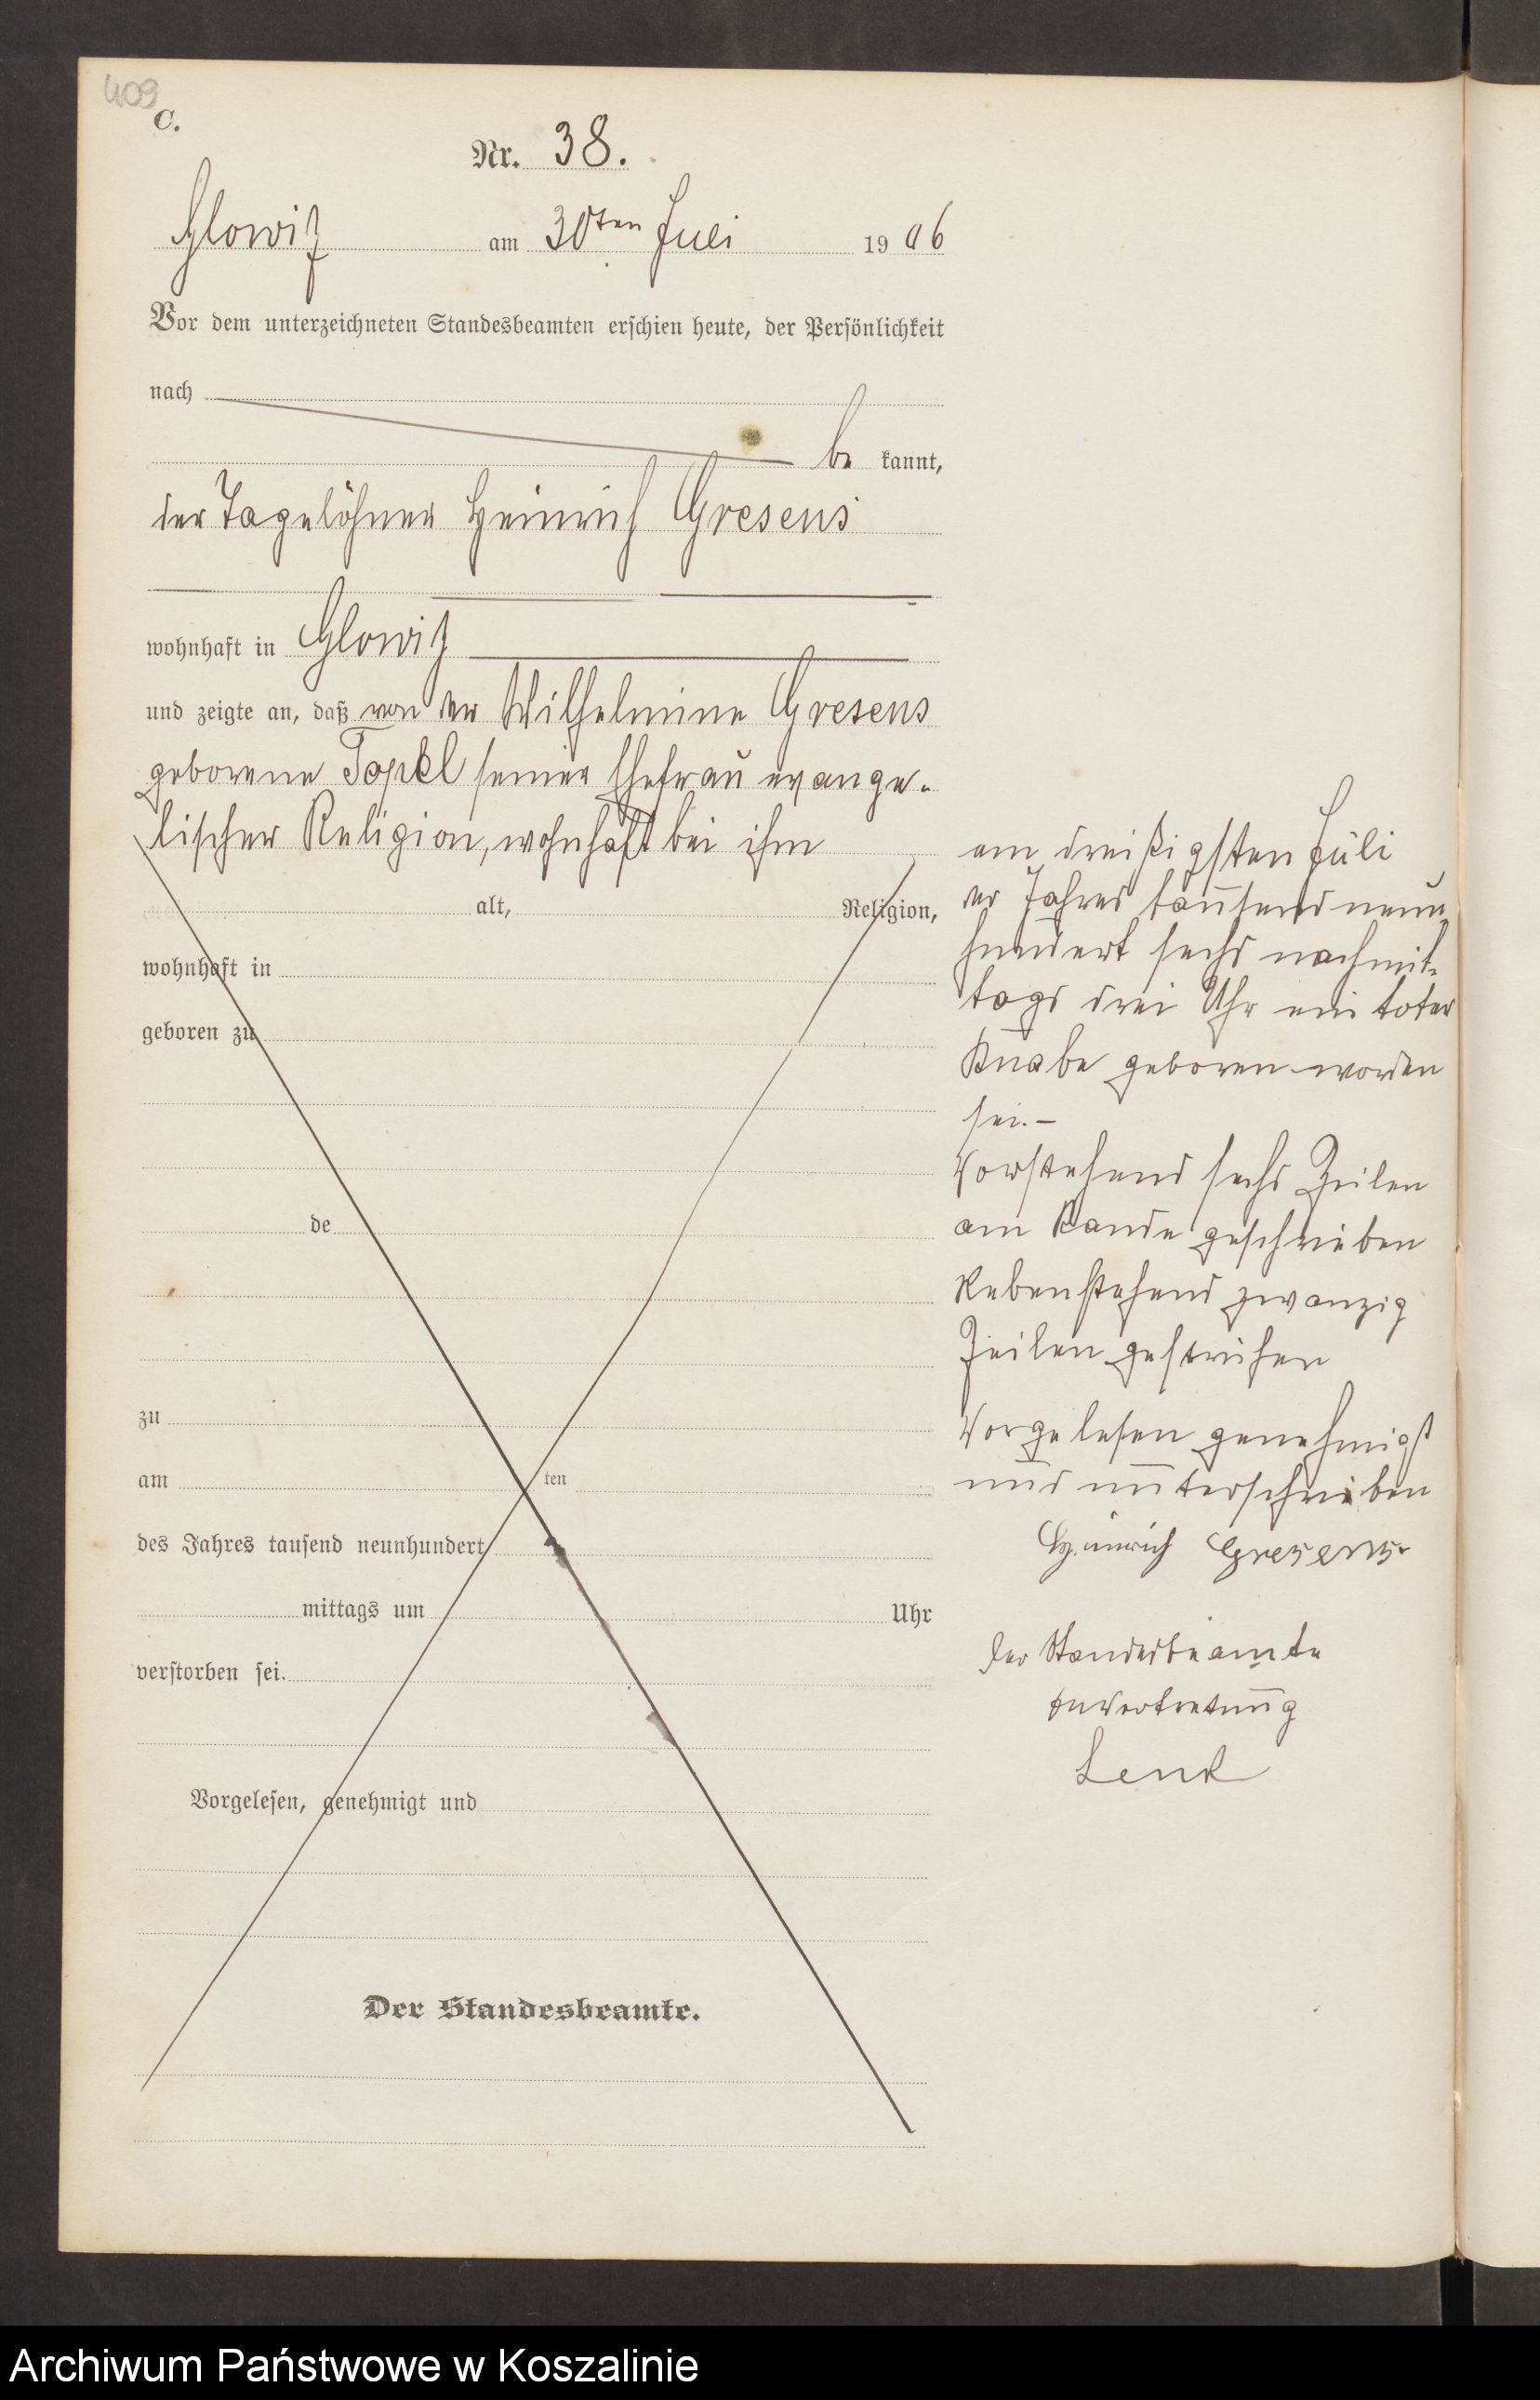 409
C.
Nr. 38.
Glowitz am 30ten Juli 1906
Vor dem unterzeichneten Standesbeamten erschien heute, der Persönlichkeit
nach
be kannt,
der Tagelöhner Heinrich Gresens
wohnhaft in Glowitz
und zeigte an, daß von der Wilhelmine Gresens
geborene Topel seiner Ehefrau evange-
lischer Religion, wohnhaft bei ihm
alt, Religion,
wohnhaft in
geboren zu
de
zu
am ten
des Jahres tausend neunhundert
mittags um Uhr
verstorben sei.
Vorgelesen, genehmigt und
Der Standesbeamte.
am dreißigsten Juli
des Jahres tausend neun-
hundert sechs nachmit-
tags drei Uhr ein toter
Knabe geboren worden
sei. -
Vorstehend sechs Zeilen
am Rande geschrieben
Nebenstehend zwanzig
Zeilen gestrichen
Vorgelesen genehmigt
und unterschrieben
Heinrich Gresens
Der Standesbeamte
In Vertretung
Lenk
Archiwum Państwowe w Koszalinie